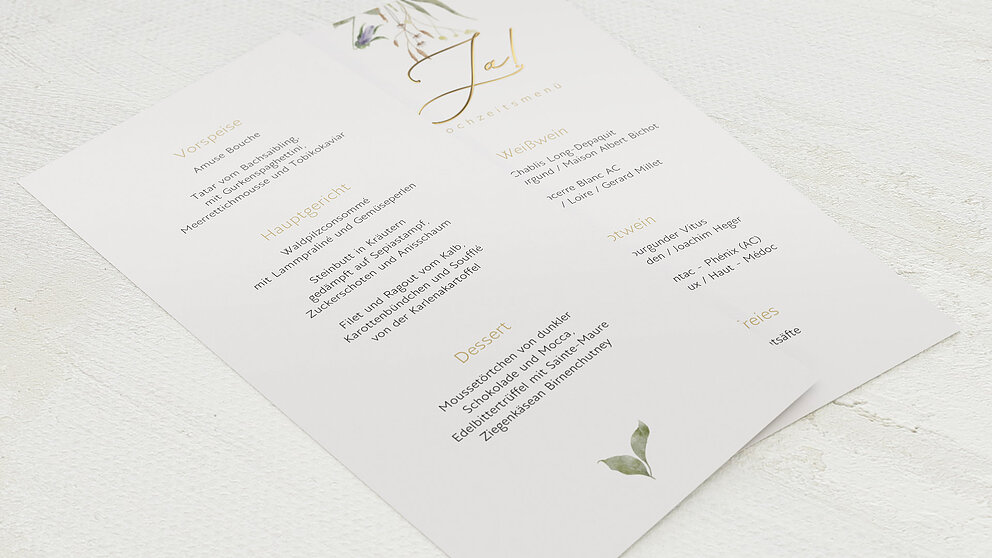 Vorspeise
Amuse Bouche
Tatar vom Bachsaibling,
mit Gurkenspaghettini,
Meerrettichmousse und Tobikokaviar
Hauptgericht
Waldpilzconsommé
mit Lammpraliné und Gemüseperlen
Steinbutt in Kräutern
gedämpft auf Sepiastampf,
Zuckerschoten und Anisschaum
Filet und Ragout vom Kalb,
Karottenbündchen und Soufflé
von der Karlenakartoffel
Dessert
Moussetörtchen von dunkler
Schokolade und Mocca,
Edelbittertrüffel mit Sainte-Maure
Ziegenkäsean Birnenchutney
Ja!
ochzeitsmenü
Weißwein
Chablis Long-Depaquit
urgund / Maison Albert Bichot
ncerre Blanc AC
/ Loire / Gerard Millet
otwein
burgunder Vitus
den / Joachim Heger
ntac - Phénix (AC)
ux / Haut - Médoc
reies
tsäfte